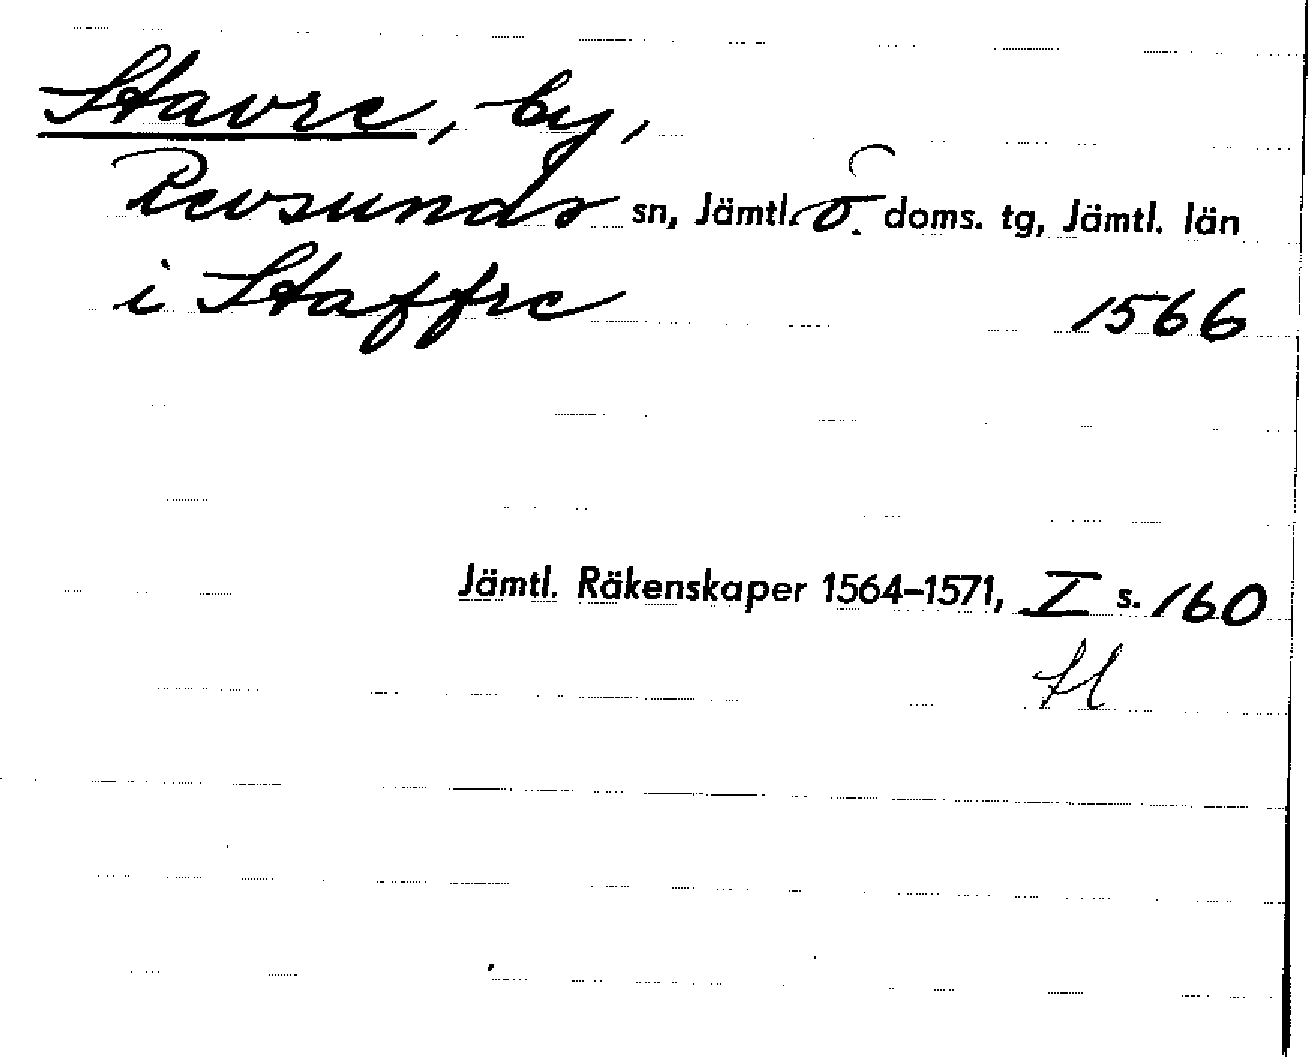 Stavre, by,
Revsunds sn, Jämtl. ö. doms. tg, Jämtl. län
i Staffre 1566
Jämtl. Räkenskaper 1564–1571, I s. 160